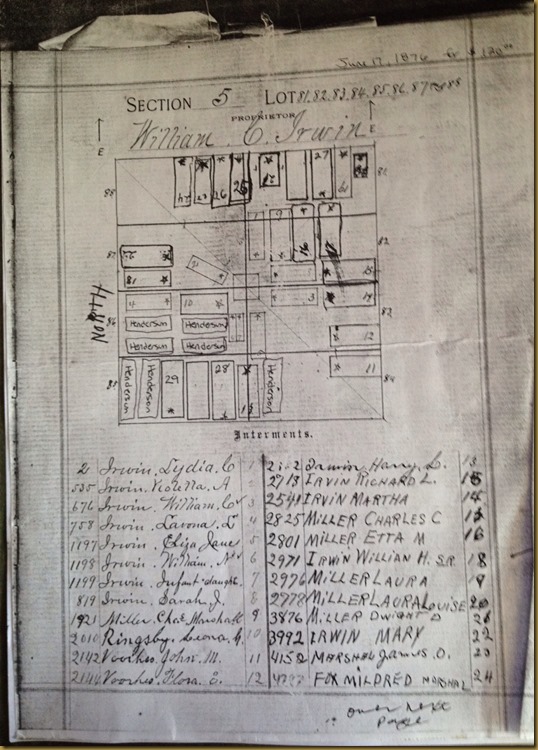 June 17, 1876
SECTION 5 LOT 81, 82, 83, 84, 85, 86, 87 88
PROPRIETOR
William C. Irwin
E E
88 27 81
26 25
87 16 82
18 15
NORTH 4 10 3 14
86 Henderson Henderson 83
12
Henderson Henderson
11
85 Henderson Henderson 29 28 Henderson 84
Interments.
2 Irwin, Lydia C 1
535 Irwin, Violetta A 2
676 Irwin, William C 3
758 Irwin, Lavona L 4
1197 Irwin, Eliza Jane 5
1198 Irwin, William N 6
1199 Irwin, Infant daught. 7
819 Irwin, Sarah J. 8
1921 Miller, Chas Marshall 9
2010 Ringsby, Leona 10
2142 Voorhes, John M. 11
2144 Voorhes, Flora E. 12
Irwin Harry L. 13
2713 IRVIN RICHARD L.
2541 IRVIN MARTHA 14
2825 MILLER CHARLES C
2801 MILLER ETTA M 16
2971 IRWIN WILLIAM H. SR 18
2976 MILLER LAURA 19
2778 MILLER LAURA LOUISE 20
3876 MILLER DWIGHT D
3992 IRWIN MARY 22
4152 MARSHAL JAMES O. 23
FOX MILDRED MARSHAL 24
over next
page